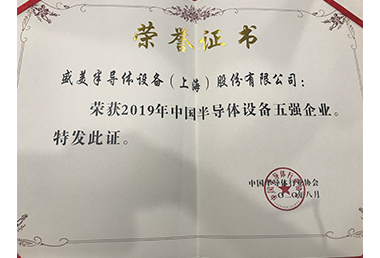 荣誉证书
盛美半导体设备（上海）股份有限公司：
荣获2019年中国半导体设备五强企业。
特发此证。
中国半导体行业协会
二〇二〇年八月